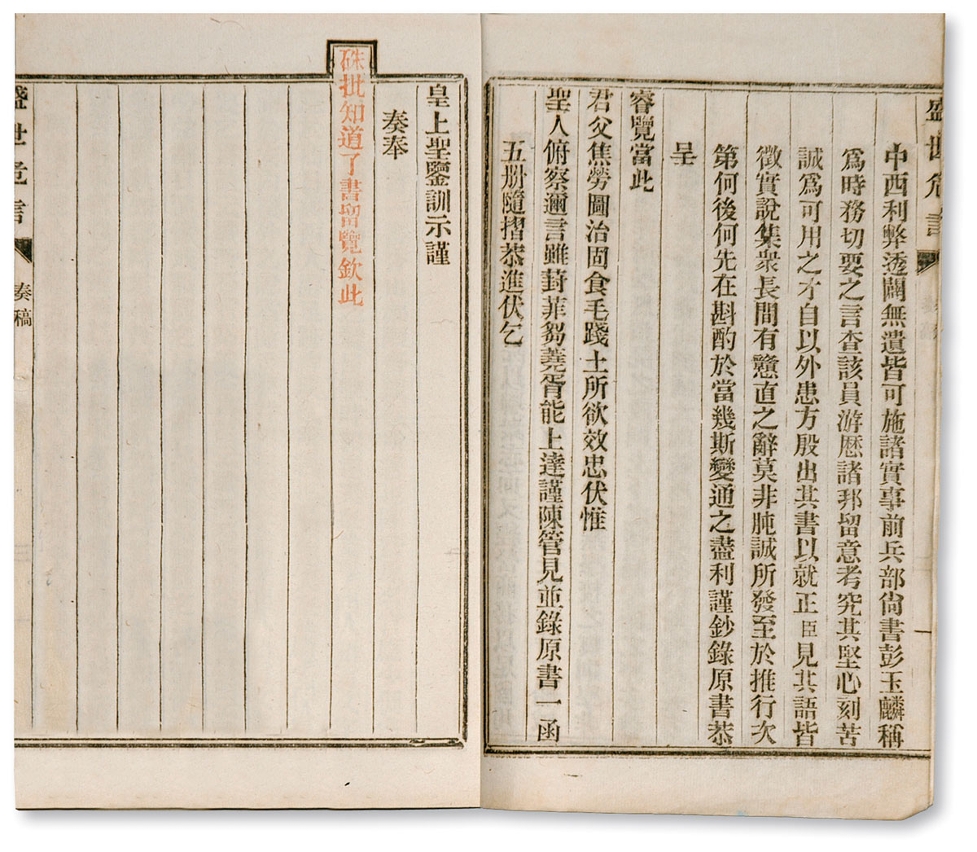 盛世危言
中西利弊透闢無遺皆可施諸實事前兵部尙書彭玉麟稱
爲時務切要之言查該員游歷諸邦留意考究其堅心刻苦
誠爲可用之才自以外患方殷出其書以就正臣見其語皆
徵實說集衆長間有戇直之辭莫非肫誠所發至於推行次
第何後何先在斟酌於當幾斯變通之盡利謹鈔錄原書恭
呈
睿覽當此
君父焦勞圖治固食毛踐土所欲效忠伏惟
聖人俯察邇言雖葑菲芻蕘胥能上達謹陳管見並錄原書一函
五册隨摺恭進伏乞
皇上聖鑒訓示謹
奏奉
硃批知道了書留覽欽此
盛世危言
奏稿